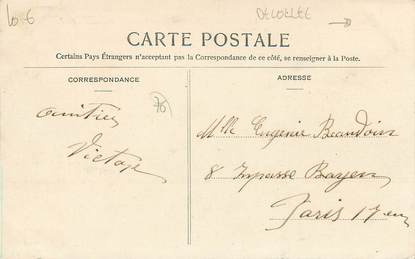 10-6
CARTE POSTALE
Certains Pays Étrangers n'acceptant pas la Correspondance de ce côté, se renseigner à la Poste.
CORRESPONDANCE
ADRESSE
76
Amitiés
Mlle Eugénie Beaudoin
8 Impasse Bayen
Paris 17 em